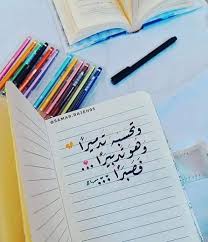 @SAMAR.RAJEHSE
وتحسبه تدميرًا
وهو تدبيرًا ...
فصبرًا ...